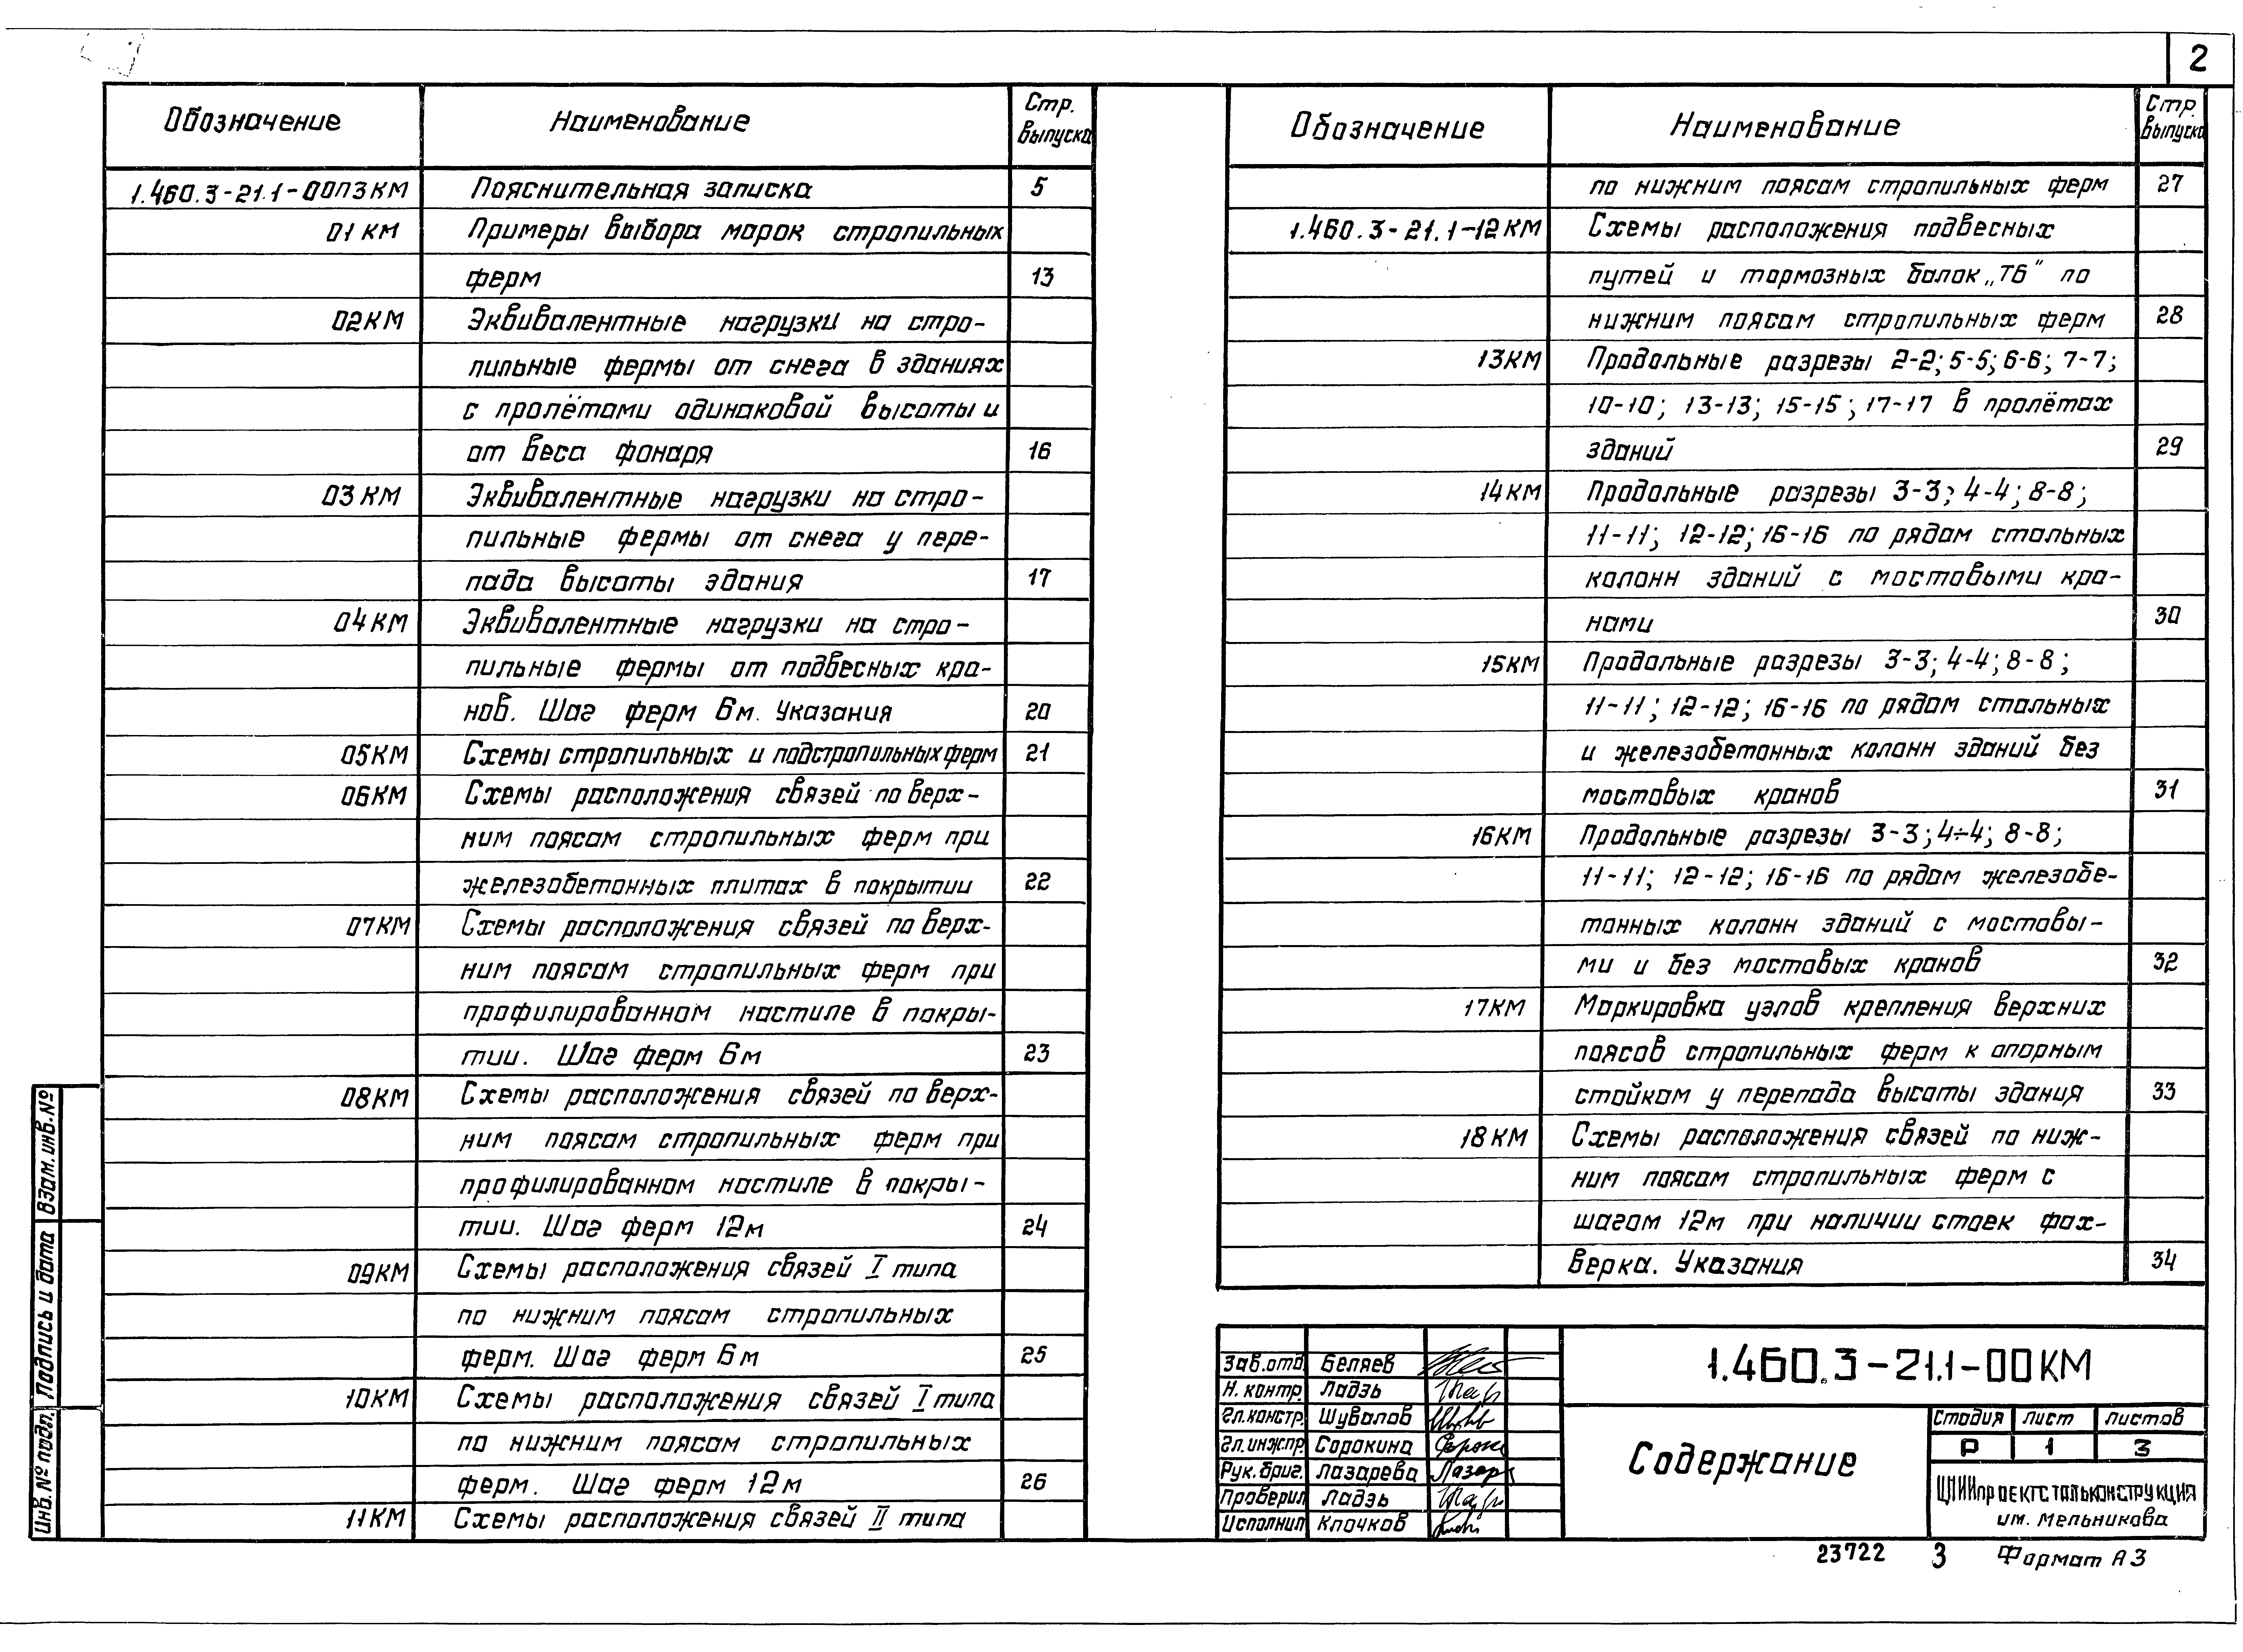 2
Обозначение Наименование Стр. выпуска
1.460.3-21.1-00ПЗКМ Пояснительная записка 5
01КМ Примеры выбора марок стропильных
ферм 13
02КМ Эквивалентные нагрузки на стро-
пильные фермы от снега в зданиях
с пролётами одинаковой высоты и
от веса фонаря 16
03КМ Эквивалентные нагрузки на стро-
пильные фермы от снега у пере-
пада высоты здания 17
04КМ Эквивалентные нагрузки на стро-
пильные фермы от подвесных кра-
нов. Шаг ферм 6м. Указания 20
05КМ Схемы стропильных и подстропильных ферм 21
06КМ Схемы расположения связей по верх-
ним поясам стропильных ферм при
железобетонных плитах в покрытии 22
07КМ Схемы расположения связей по верх-
ним поясам стропильных ферм при
профилированном настиле в покры-
тии. Шаг ферм 6м 23
08КМ Схемы расположения связей по верх-
ним поясам стропильных ферм при
профилированном настиле в покры-
тии. Шаг ферм 12м 24
09КМ Схемы расположения связей I типа
по нижним поясам стропильных
ферм. Шаг ферм 6м 25
10КМ Схемы расположения связей I типа
по нижним поясам стропильных
ферм. Шаг ферм 12м 26
11КМ Схемы расположения связей II типа
Обозначение Наименование Стр. выпуска
по нижним поясам стропильных ферм 27
1.460.3-21.1-12КМ Схемы расположения подвесных
путей и тормозных балок „ТБ" по
нижним поясам стропильных ферм 28
13КМ Продольные разрезы 2-2; 5-5; 6-6; 7-7;
10-10; 13-13; 15-15; 17-17 в пролётах
зданий 29
14КМ Продольные разрезы 3-3; 4-4; 8-8;
11-11; 12-12; 16-16 по рядам стальных
колонн зданий с мостовыми кра-
нами 30
15КМ Продольные разрезы 3-3; 4-4; 8-8;
11-11; 12-12; 16-16 по рядам стальных
и железобетонных колонн зданий без
мостовых кранов 31
16КМ Продольные разрезы 3-3; 4÷4; 8-8;
11-11; 12-12; 16-16 по рядам железобе-
тонных колонн зданий с мостовы-
ми и без мостовых кранов 32
17КМ Маркировка узлов крепления верхних
поясов стропильных ферм к опорным
стойкам у перепада высоты здания 33
18КМ Схемы расположения связей по ниж-
ним поясам стропильных ферм с
шагом 12м при наличии стоек фах-
верка. Указания 34
Зав.отд. Беляев
Н. контр. Ладзь
Гл.констр. Шувалов
Гл.инж.пр. Сорокина
Рук.бриг. Лазарева
Проверил Ладзь
Исполнил Клочков
1.460.3-21.1-00КМ
Содержание
Стадия Лист Листов
Р 1 3
ЦНИИпроектстальконструкция
им. Мельникова
Взам. инв. №
Подпись и дата
Инв. № подл.
23722 3 Формат А3